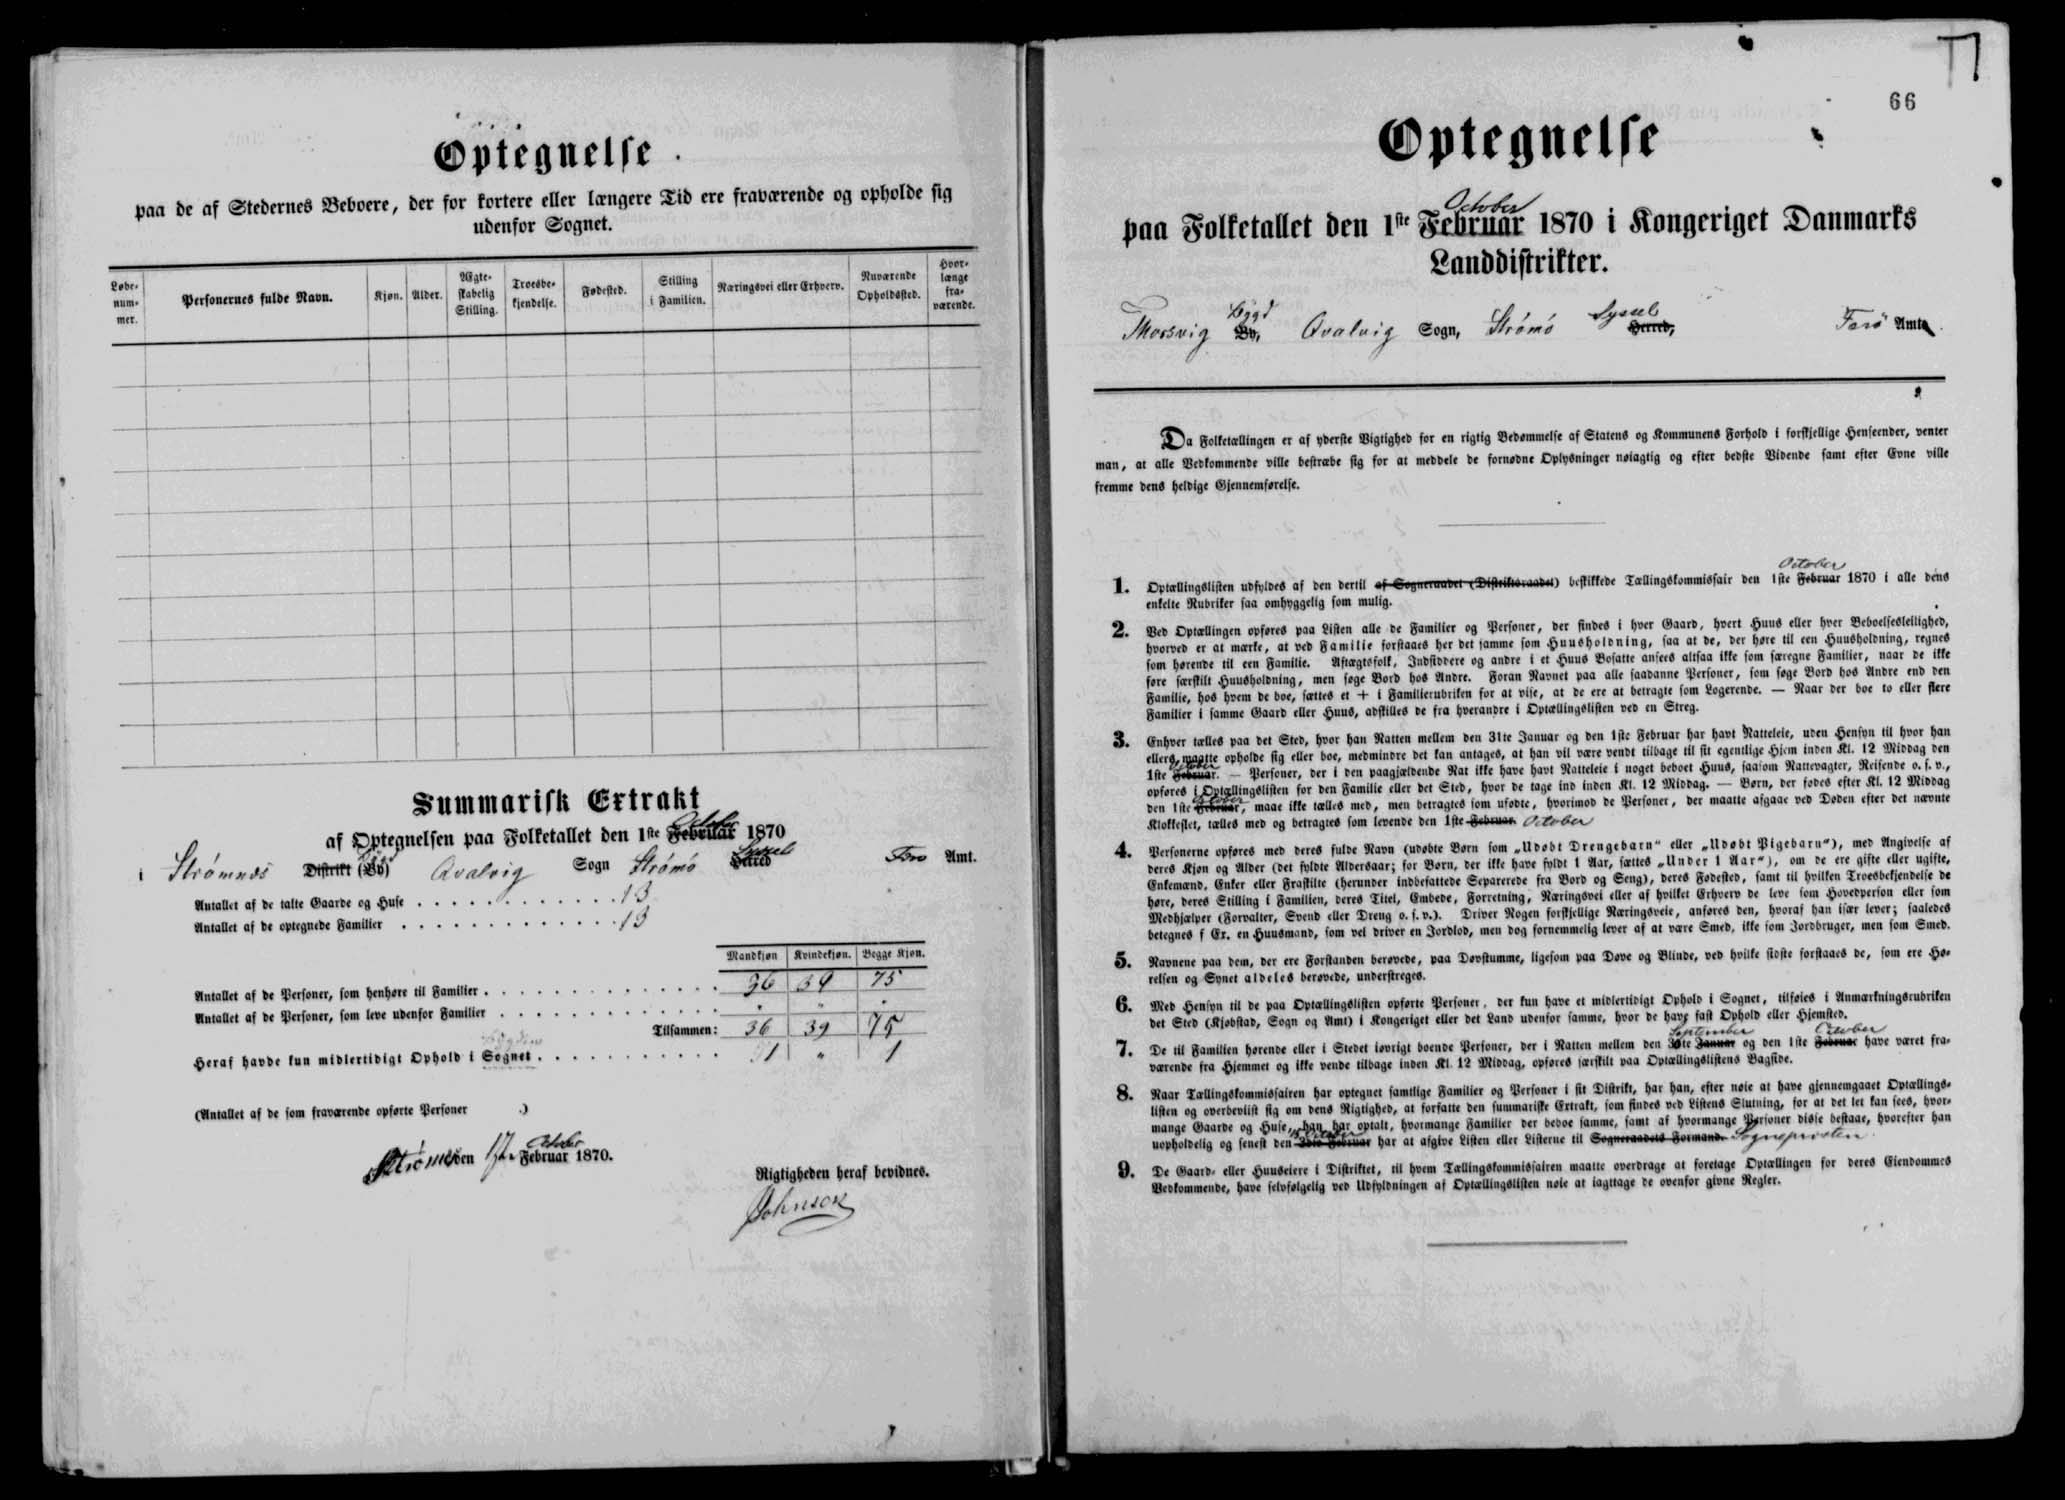 Optegnelse
paa de af Stedernes Beboere, der for kortere eller længere Tid ere fraværende og opholde sig
udenfor Sognet.
Løbe-
num-
mer.
Personernes fulde Navn.
Kjøn.
Alder.
Ægte-
skabelig
Stilling.
Troesbe-
kjendelse.
Fødested.
Stilling
i Familien.
Næringsvei eller Erhverv.
Nuværende
Opholdssted.
Hvor-
længe
fra-
værende.
Summarisk Extrakt
October
af Optegnelsen paa Folketallet den 1ste Februar 1870
Bygd Syssel
i Strømnæs Distrikt (By) Qvalvig Sogn Strømø Herred Færø Amt.
Antallet af de talte Gaarde og Huse . . . . . . . . . . . . 13
Antallet af de optegnede Familier . . . . . . . . . . . . . 13
Mandkjøn Kvindekjøn. Begge Kjøn.
Antallet af de Personer, som henhøre til Familier . . . . . . . . . . . . . . 36 39 75
Antallet af de Personer, som leve udenfor Familier . . . . . . . . . . . . . " " "
Tilsammen: 36 39 75
Bygden
Heraf havde kun midlertidigt Ophold i Sognet . . . . . . . . . . . 1 " 1
(Antallet af de som fraværende opførte Personer )
October
den Februar 1870.
Rigtigheden heraf bevidnes.
66
Optegnelse
October
paa Folketallet den 1ste Februar 1870 i Kongeriget Danmarks
Landdistrikter.
Bygd Syssel
Thorsvig By, Qvalvig Sogn, Strømø Herred, Færö Amt.
Da Folketællingen er af yderste Vigtighed for en rigtig Bedømmelse af Statens og Kommunens Forhold i forskjellige Henseender, venter
man, at alle Vedkommende ville bestræbe sig for at meddele de fornødne Oplysninger nøiagtig og efter bedste Vidende samt efter Evne ville
fremme dens heldige Gjennemførelse.
October
1. Optællingslisten udfyldes af den dertil af Sogneraadet (Distriktsraadet) beskikkede Tællingskommissair den 1ste Februar 1870 i alle dens
enkelte Rubriker saa omhyggelig som mulig.
2. Ved Optællingen opføres paa Listen alle de Familier og Personer, der findes i hver Gaard, hvert Huus eller hver Beboelsesleilighed,
hvorved er at mærke, at ved Familie forstaaes her det samme som Huusholdning, saa at de, der høre til een Huusholdning, regnes
som hørende til een Familie. Aftægtsfolk, Indsiddere og andre i et Huus Bosatte ansees altsaa ikke som særegne Familier, naar de ikke
føre særskilt Huusholdning, men søge Bord hos Andre. Foran Navnet paa alle saadanne Personer, som søge Bord hos Andre end den
Familie, hos hvem de boe, sættes et + i Familierubriken for at vise, at de ere at betragte som Logerende. — Naar der boe to eller flere
Familier i samme Gaard eller Huus, adskilles de fra hverandre i Optællingslisten ved en Streg.
3. Enhver tælles paa det Sted, hvor han Natten mellem den 31te Januar og den 1ste Februar har havt Natteleie, uden Hensyn til hvor han
ellers maatte opholde sig eller boe, medmindre det kan antages, at han vil være vendt tilbage til sit egentlige Hjem inden Kl. 12 Middag den
October
1ste Februar. — Personer, der i den paagjældende Nat ikke have havt Natteleie i noget beboet Huus, saasom Nattevagter, Reisende o. s. v.,
opføres i Optællingslisten for den Familie eller det Sted, hvor de tage ind inden Kl. 12 Middag. — Børn, der fødes efter Kl. 12 Middag
October
den 1ste Februar, maae ikke tælles med, men betragtes som ufødte, hvorimod de Personer, der maatte afgaae ved Døden efter det nævnte
Klokkeslet, tælles med og betragtes som levende den 1ste Februar. October
4. Personerne opføres med deres fulde Navn (udøbte Børn som „Udøbt Drengebarn“ eller „Udøbt Pigebarn“), med Angivelse af
deres Kjøn og Alder (det fyldte Aldersaar; for Børn, der ikke have fyldt 1 Aar, sættes „Under 1 Aar“), om de ere gifte eller ugifte,
Enkemænd, Enker eller Fraskilte (herunder indbefattede Separerede fra Bord og Seng), deres Fødested, samt til hvilken Troesbekjendelse de
høre, deres Stilling i Familien, deres Titel, Embede, Forretning, Næringsvei eller af hvilket Erhverv de leve som Hovedperson eller som
Medhjælper (Forvalter, Svend eller Dreng o. s. v.). Driver Nogen forskjellige Næringsveie, anføres den, hvoraf han især lever; saaledes
betegnes f Ex. en Huusmand, som vel driver en Jordlod, men dog fornemmelig lever af at være Smed, ikke som Jordbruger, men som Smed.
5. Navnene paa dem, der ere Forstanden berøvede, paa Døvstumme, ligesom paa Døve og Blinde, ved hvilke sidste forstaaes de, som ere Hø-
relsen og Synet aldeles berøvede, understreges.
6. Med Hensyn til de paa Optællingslisten opførte Personer, der kun have et midlertidigt Ophold i Sognet, tilføies i Anmærkningsrubriken
det Sted (Kjøbstad, Sogn og Amt) i Kongeriget eller det Land udenfor samme, hvor de have fast Ophold eller Hjemsted.
September October
7. De til Familien hørende eller i Stedet iøvrigt boende Personer, der i Natten mellem den 30te Januar og den 1ste Februar have været fra-
værende fra Hjemmet og ikke vende tilbage inden Kl. 12 Middag, opføres særskilt paa Optællingslistens Bagside.
8. Naar Tællingskommissairen har optegnet samtlige Familier og Personer i sit Distrikt, har han, efter nøie at have gjennemgaaet Optællings-
listen og overbeviist sig om dens Rigtighed, at forfatte den summariske Extrakt, som findes ved Listens Slutning, for at det let kan sees, hvor-
mange Gaarde og Huse, han har optalt, hvormange Familier der beboe samme, samt af hvormange Personer disse bestaae, hvorefter han
October
uopholdelig og senest den Februar har at afgive Listen eller Listerne til Sogneraadets Formand. Sognepræsten.
9. De Gaard- eller Huuseiere i Distriktet, til hvem Tællingskommissairen maatte overdrage at foretage Optællingen for deres Eiendommes
Vedkommende, have selvfølgelig ved Udfyldningen af Optællingslisten nøie at iagttage de ovenfor givne Regler.